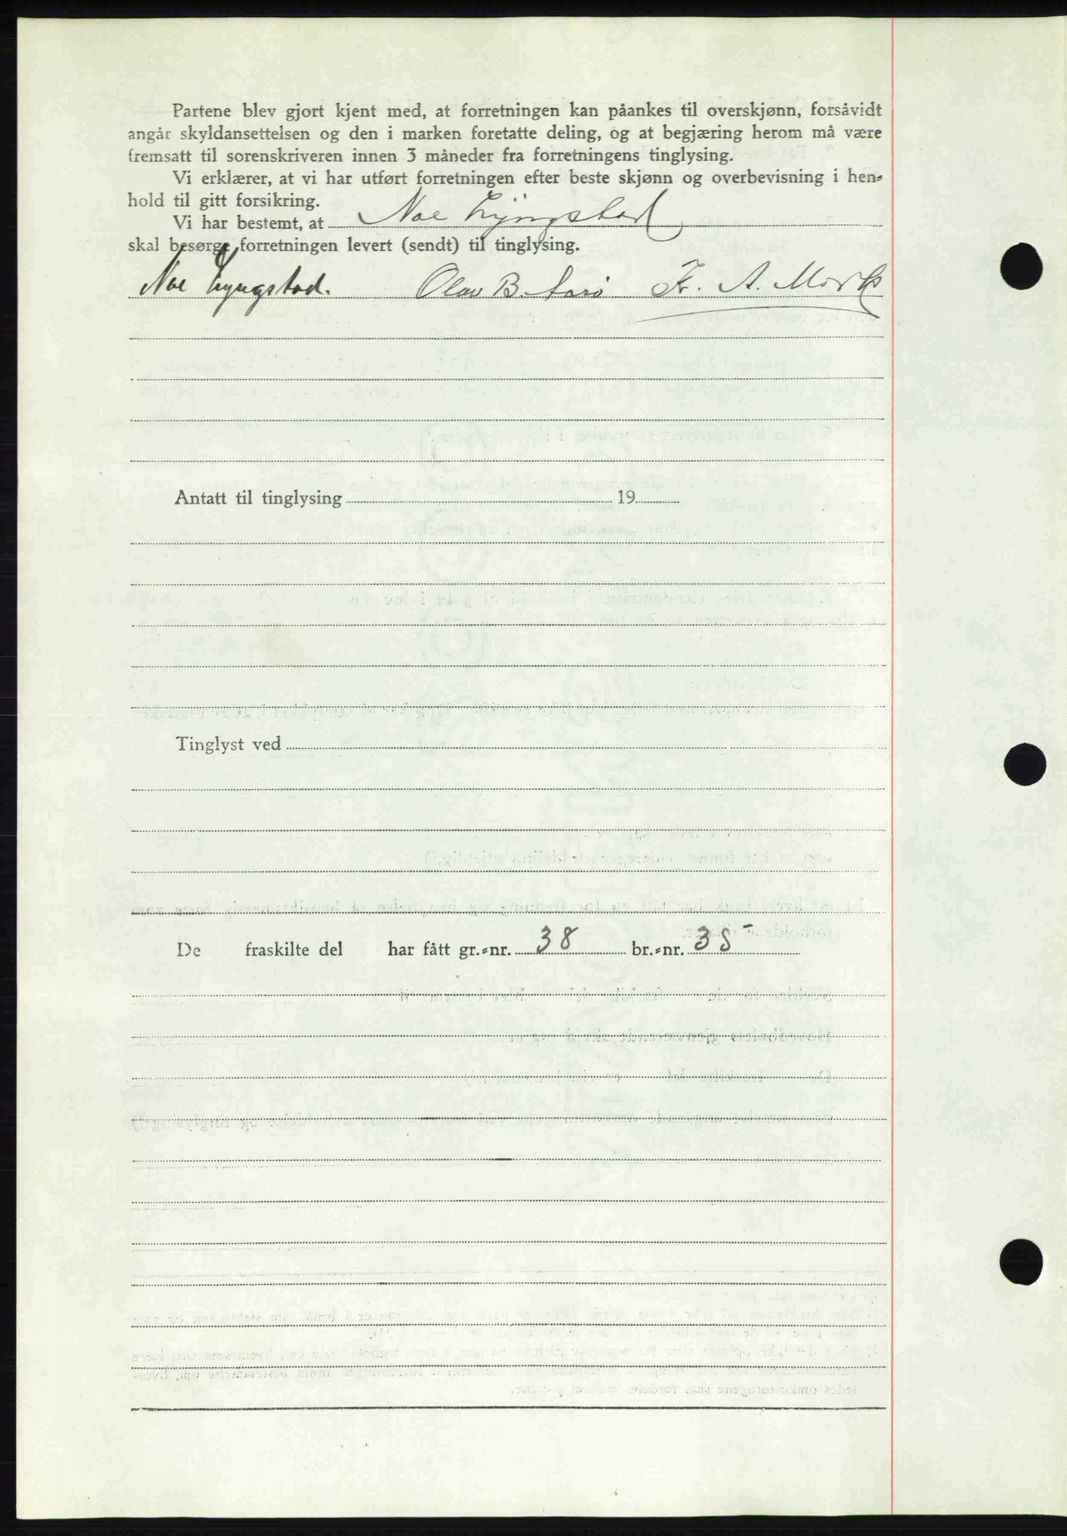 Partene blev gjort kjent med, at forretningen kan påankes til overskjønn, forsåvidt
angår skyldansettelsen og den i marken foretatte deling, og at begjæring herom må være
fremsatt til sorenskriveren innen 3 måneder fra forretningens tinglysing.
Vi erklærer, at vi har utført forretningen efter beste skjønn og overbevisning i hen-
hold til gitt forsikring.
Vi har bestemt, at Noe Lyngstad
skal besørge forretningen levert (sendt) til tinglysing.
Noe Lyngstad. Olav B. Fr. A. Mork
Antatt til tinglysing 19
Tinglyst ved
De fraskilte del har fått gr.-nr. 38 br.-nr. 35